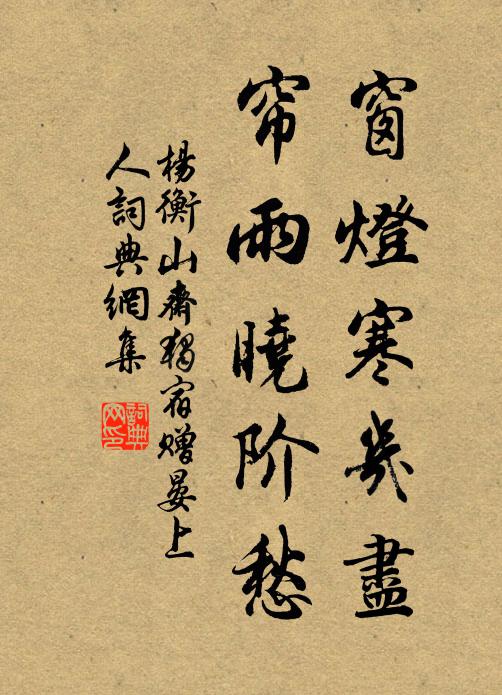 窗燈寒幾盡
帘雨曉阶愁
楊衡山齋獨宿贈晏上
人詞典網集
詞典网印